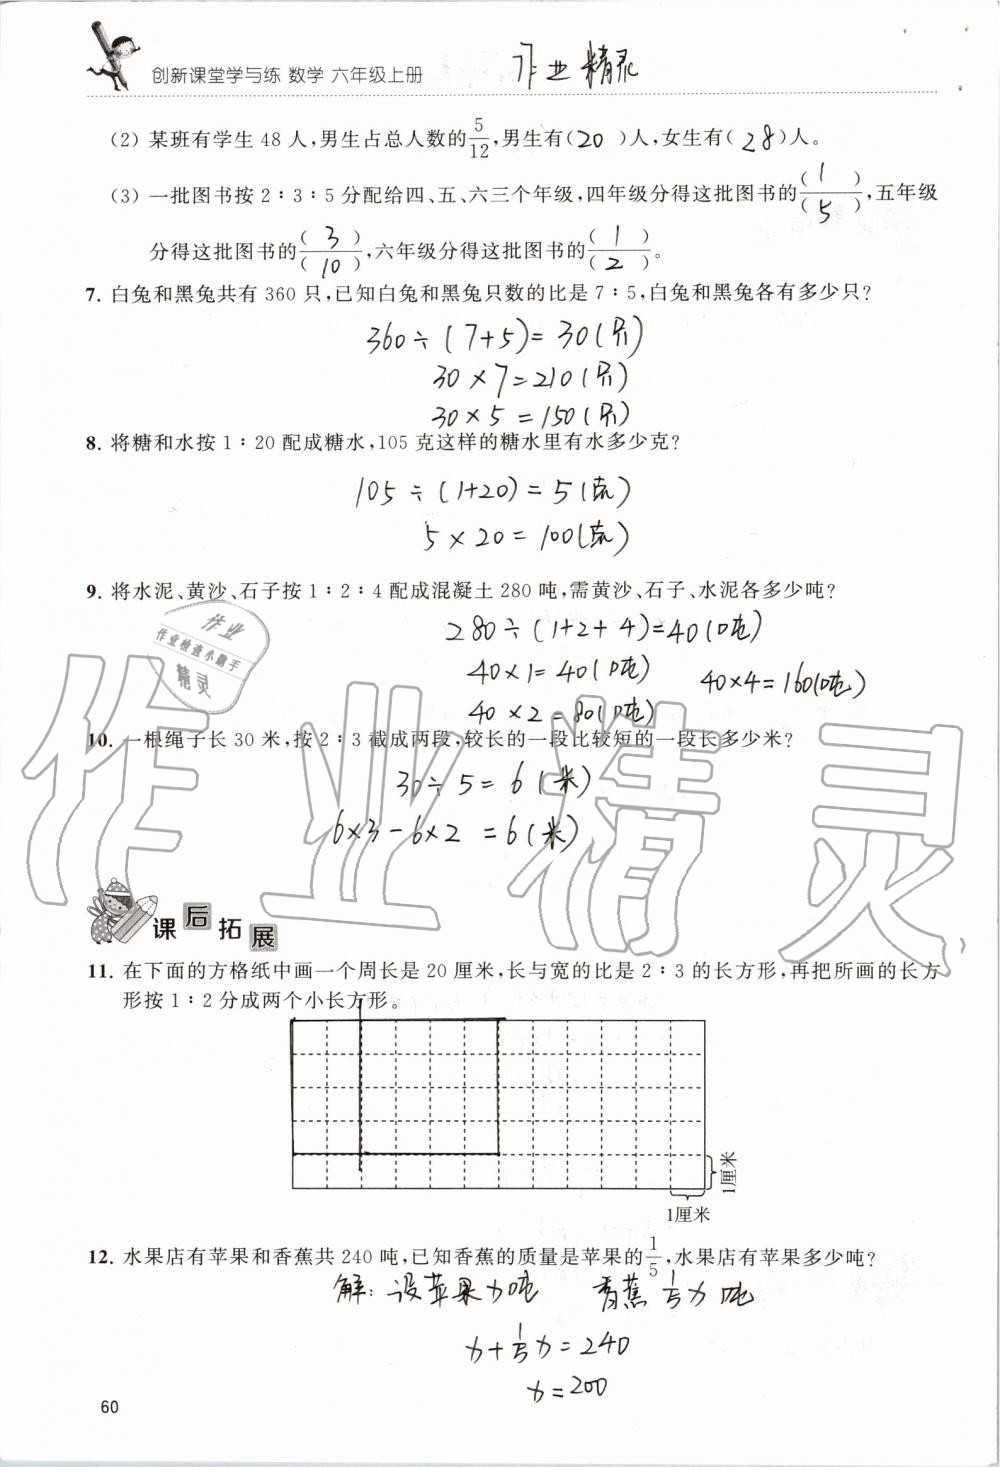 创新课堂学与练 数学 六年级上册
作业精灵
(2) 某班有学生48人,男生占总人数的5/12,男生有(20)人,女生有(28)人。
(3) 一批图书按2∶3∶5分配给四、五、六三个年级,四年级分得这批图书的(1)/(5),五年级
分得这批图书的(3)/(10),六年级分得这批图书的(1)/(2)。
7. 白兔和黑兔共有360只,已知白兔和黑兔只数的比是7∶5,白兔和黑兔各有多少只?
360÷(7+5)=30(只)
30×7=210(只)
30×5=150(只)
8. 将糖和水按1∶20配成糖水,105克这样的糖水里有水多少克?
105÷(1+20)=5(克)
5×20=100(克)
9. 将水泥、黄沙、石子按1∶2∶4配成混凝土280吨,需黄沙、石子、水泥各多少吨?
280÷(1+2+4)=40(吨)
40×1=40(吨) 40×4=160(吨)
40×2=80(吨)
作业
作业检查小助手
精灵
10. 一根绳子长30米,按2∶3截成两段,较长的一段比较短的一段长多少米?
30÷5=6(米)
6×3-6×2=6(米)
作业精灵
课后拓展
11. 在下面的方格纸中画一个周长是20厘米,长与宽的比是2∶3的长方形,再把所画的长方
形按1∶2分成两个小长方形。
1厘米
1厘米
12. 水果店有苹果和香蕉共240吨,已知香蕉的质量是苹果的1/5,水果店有苹果多少吨?
解:设苹果x吨 香蕉1/5x吨
x+1/5x=240
x=200
60